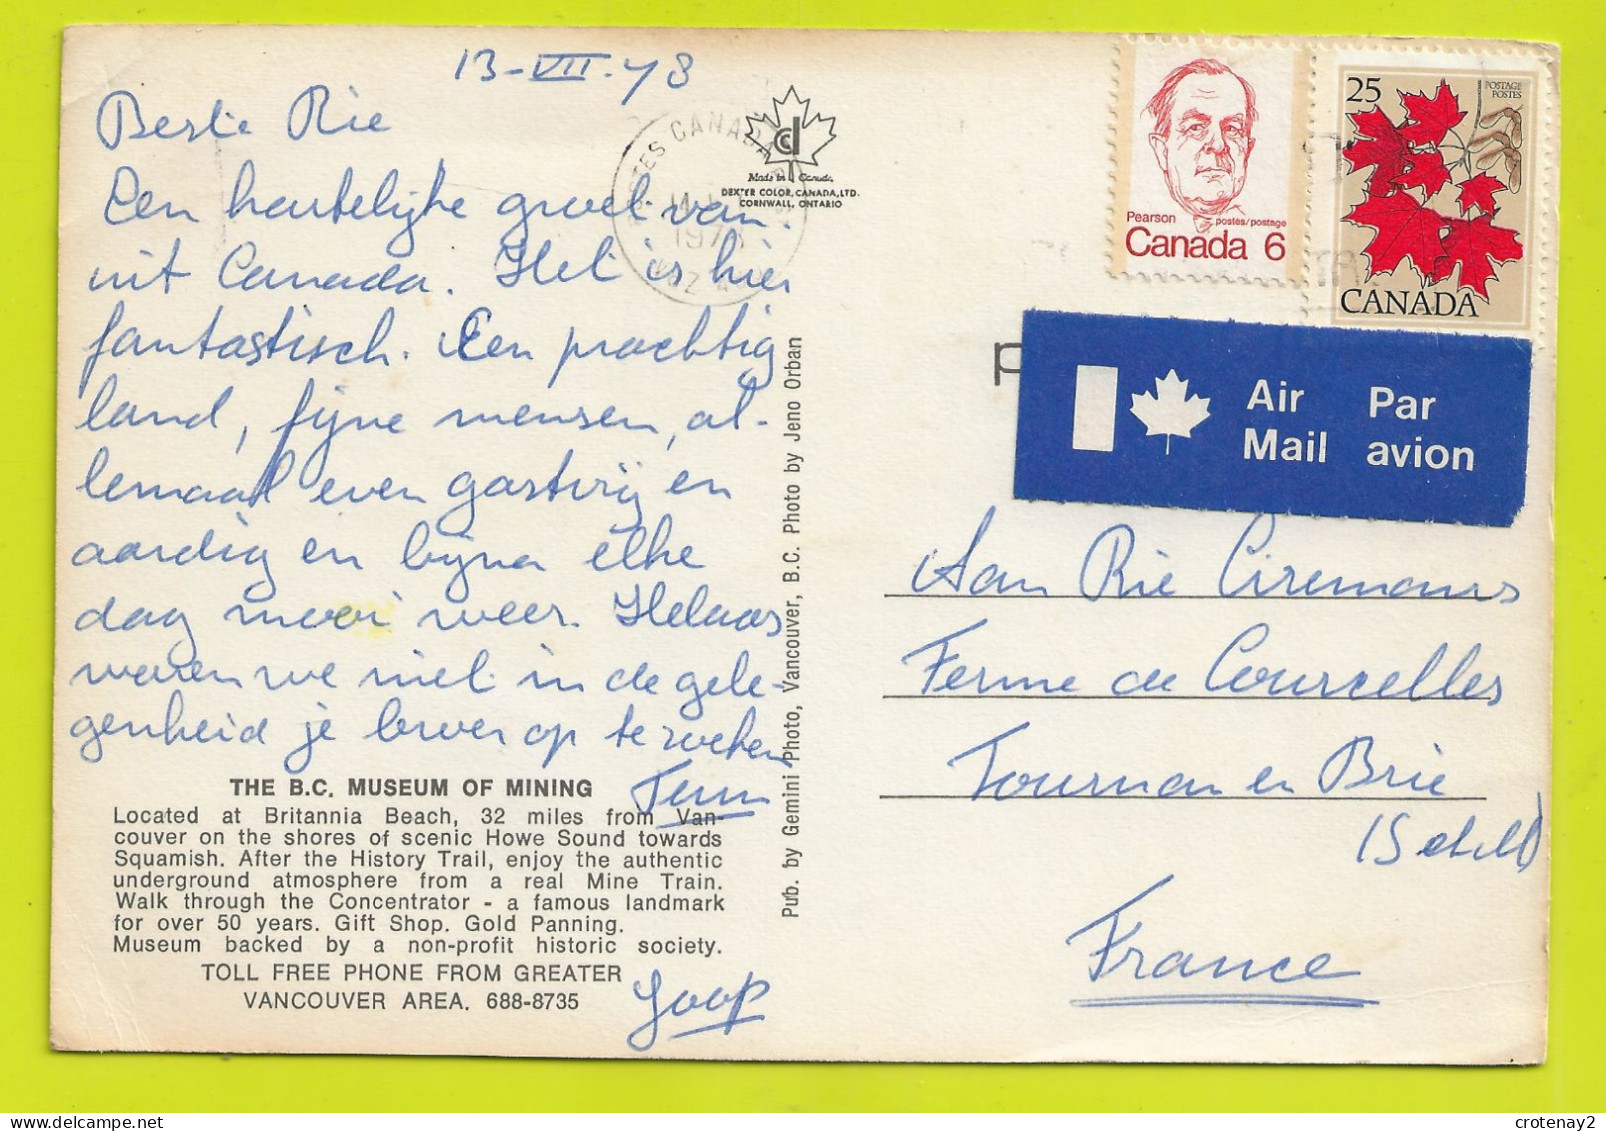 13-VII-78
Beste Rie
Een hartelijke groet van
uit Canada. Het is hier
fantastisch. Een prachtig
land, fijne mensen, al-
lemaal even gastvrij en
aardig en bijna elke
dag mooi weer. Helaas
waren we niet in de gele-
genheid je broer op te zoeken
THE B.C. MUSEUM OF MINING
Located at Britannia Beach, 32 miles from Van-
couver on the shores of scenic Howe Sound towards
Squamish. After the History Trail, enjoy the authentic
underground atmosphere from a real Mine Train.
Walk through the Concentrator - a famous landmark
for over 50 years. Gift Shop. Gold Panning.
Museum backed by a non-profit historic society.
TOLL FREE PHONE FROM GREATER
VANCOUVER AREA. 688-8735
Joop
POSTES CANADA
197
cd
Made in Canada.
DEXTER COLOR, CANADA, LTD.
CORNWALL, ONTARIO
Pub. by Gemini Photo, Vancouver, B.C. Photo by Jeno Orban
Pearson postes/postage
Canada 6
25 POSTAGE
POSTES
CANADA
Air Par
Mail avion
Aan Rie
Ferme de Courcelles
Tournan en Brie
France
crotenay2